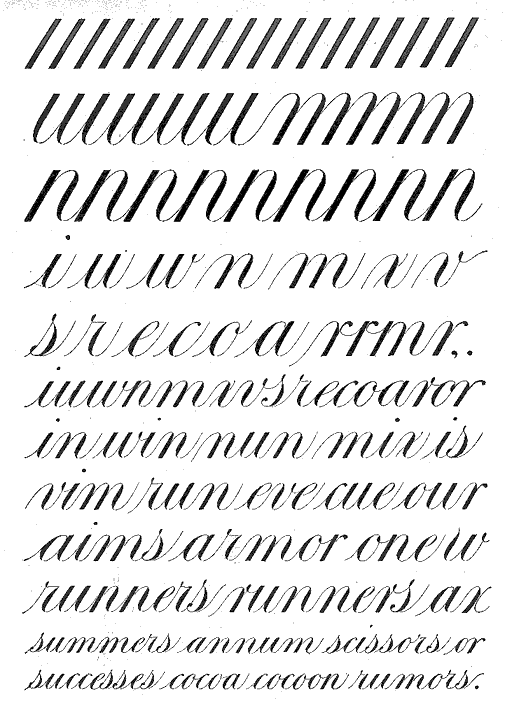 i u w n m x v
s r e c o a r r m r,.
iuwnmxvsrecoaror
in win nun mix is
vim run eve cue our
aims armor one w
runners runners ax
summers annum scissors or
successes cocoa cocoon rumors.